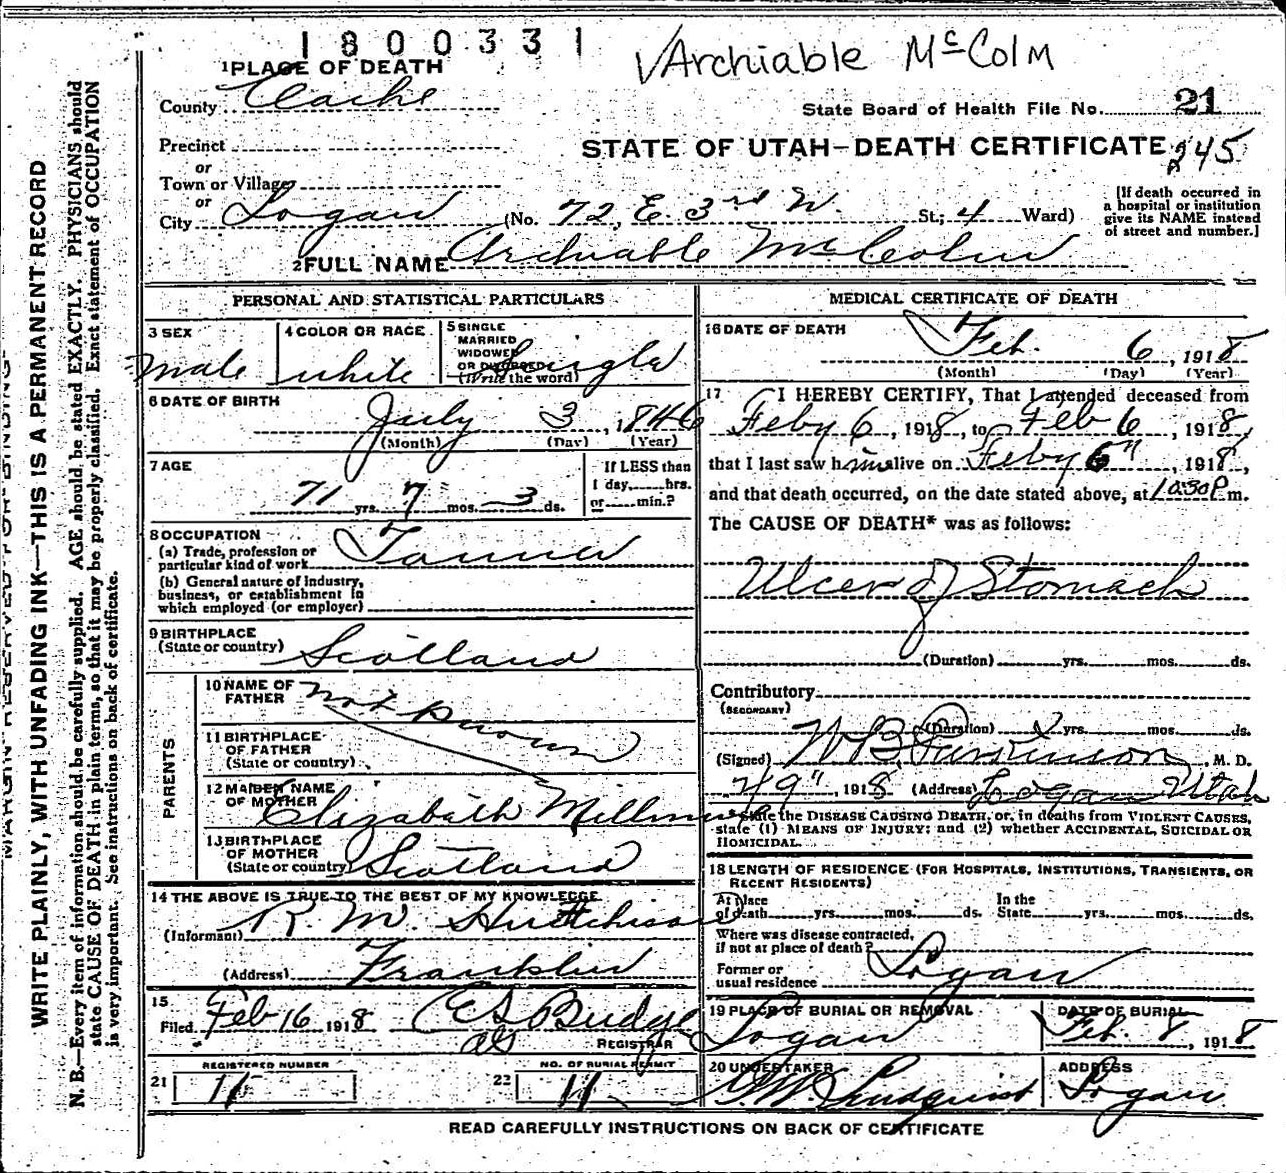 1800331
✓Archiable McColm
1 PLACE OF DEATH
County Cache
State Board of Health File No. 21
Precinct
STATE OF UTAH—DEATH CERTIFICATE
245
or
Town or Village
or
City Logan (No. 72, E. 3rd W. St.; 4 Ward)
[If death occurred in
a hospital or institution
give its NAME instead
of street and number.]
2 FULL NAME Archiable McColm
PERSONAL AND STATISTICAL PARTICULARS
3 SEX
male
4 COLOR OR RACE
white
5 SINGLE
MARRIED
WIDOWED
OR DIVORCED
(Write the word)
Single
6 DATE OF BIRTH
July 3, 1846
(Month) (Day) (Year)
7 AGE
71 yrs. 7 mos. 3 ds.
If LESS than
1 day, hrs.
or min.?
8 OCCUPATION
(a) Trade, profession or
particular kind of work Tanner
(b) General nature of industry,
business, or establishment in
which employed (or employer)
9 BIRTHPLACE
(State or country) Scotland
PARENTS
10 NAME OF
FATHER
not known
11 BIRTHPLACE
OF FATHER
(State or country)
12 MAIDEN NAME
OF MOTHER
Elizabath
13 BIRTHPLACE
OF MOTHER
(State or country) Scotland
14 THE ABOVE IS TRUE TO THE BEST OF MY KNOWLEDGE
(Informant) R. M. Hutchison
(Address) Franklin
15
Filed Feb 16 1918 Budge
REGISTRAR
REGISTERED NUMBER
21 11
NO. OF BURIAL PERMIT
22 11
MEDICAL CERTIFICATE OF DEATH
16 DATE OF DEATH
Feb. 6, 1918
(Month) (Day) (Year)
17 I HEREBY CERTIFY, That I attended deceased from
Feby 6, 1918, to Feb 6, 1918,
that I last saw him alive on Feby 6", 1918,
and that death occurred, on the date stated above, at 10:30 P. m.
The CAUSE OF DEATH* was as follows:
Ulcer of Stomach
(Duration) yrs. mos. ds.
Contributory
(SECONDARY)
(Duration) yrs. mos. ds.
(Signed) W B Parkinson, M. D.
2/9", 1918 (Address) Logan Utah
State the DISEASE CAUSING DEATH, or, in deaths from VIOLENT CAUSES,
state (1) MEANS OF INJURY; and (2) whether ACCIDENTAL, SUICIDAL OR
HOMICIDAL.
18 LENGTH OF RESIDENCE (FOR HOSPITALS, INSTITUTIONS, TRANSIENTS, OR
RECENT RESIDENTS)
At place
of death yrs. mos. ds.
In the
State yrs. mos. ds.
Where was disease contracted,
if not at place of death?
Former or
usual residence Logan
19 PLACE OF BURIAL OR REMOVAL
Logan
DATE OF BURIAL
Feb. 8, 1918
20 UNDERTAKER
Lindquist
ADDRESS
Logan
READ CAREFULLY INSTRUCTIONS ON BACK OF CERTIFICATE
MARGIN RESERVED FOR BINDING
WRITE PLAINLY, WITH UNFADING INK—THIS IS A PERMANENT RECORD
N. B.—Every item of information should be carefully supplied. AGE should be stated EXACTLY. PHYSICIANS should
state CAUSE OF DEATH in plain terms, so that it may be properly classified. Exact statement of OCCUPATION
is very important. See instructions on back of certificate.